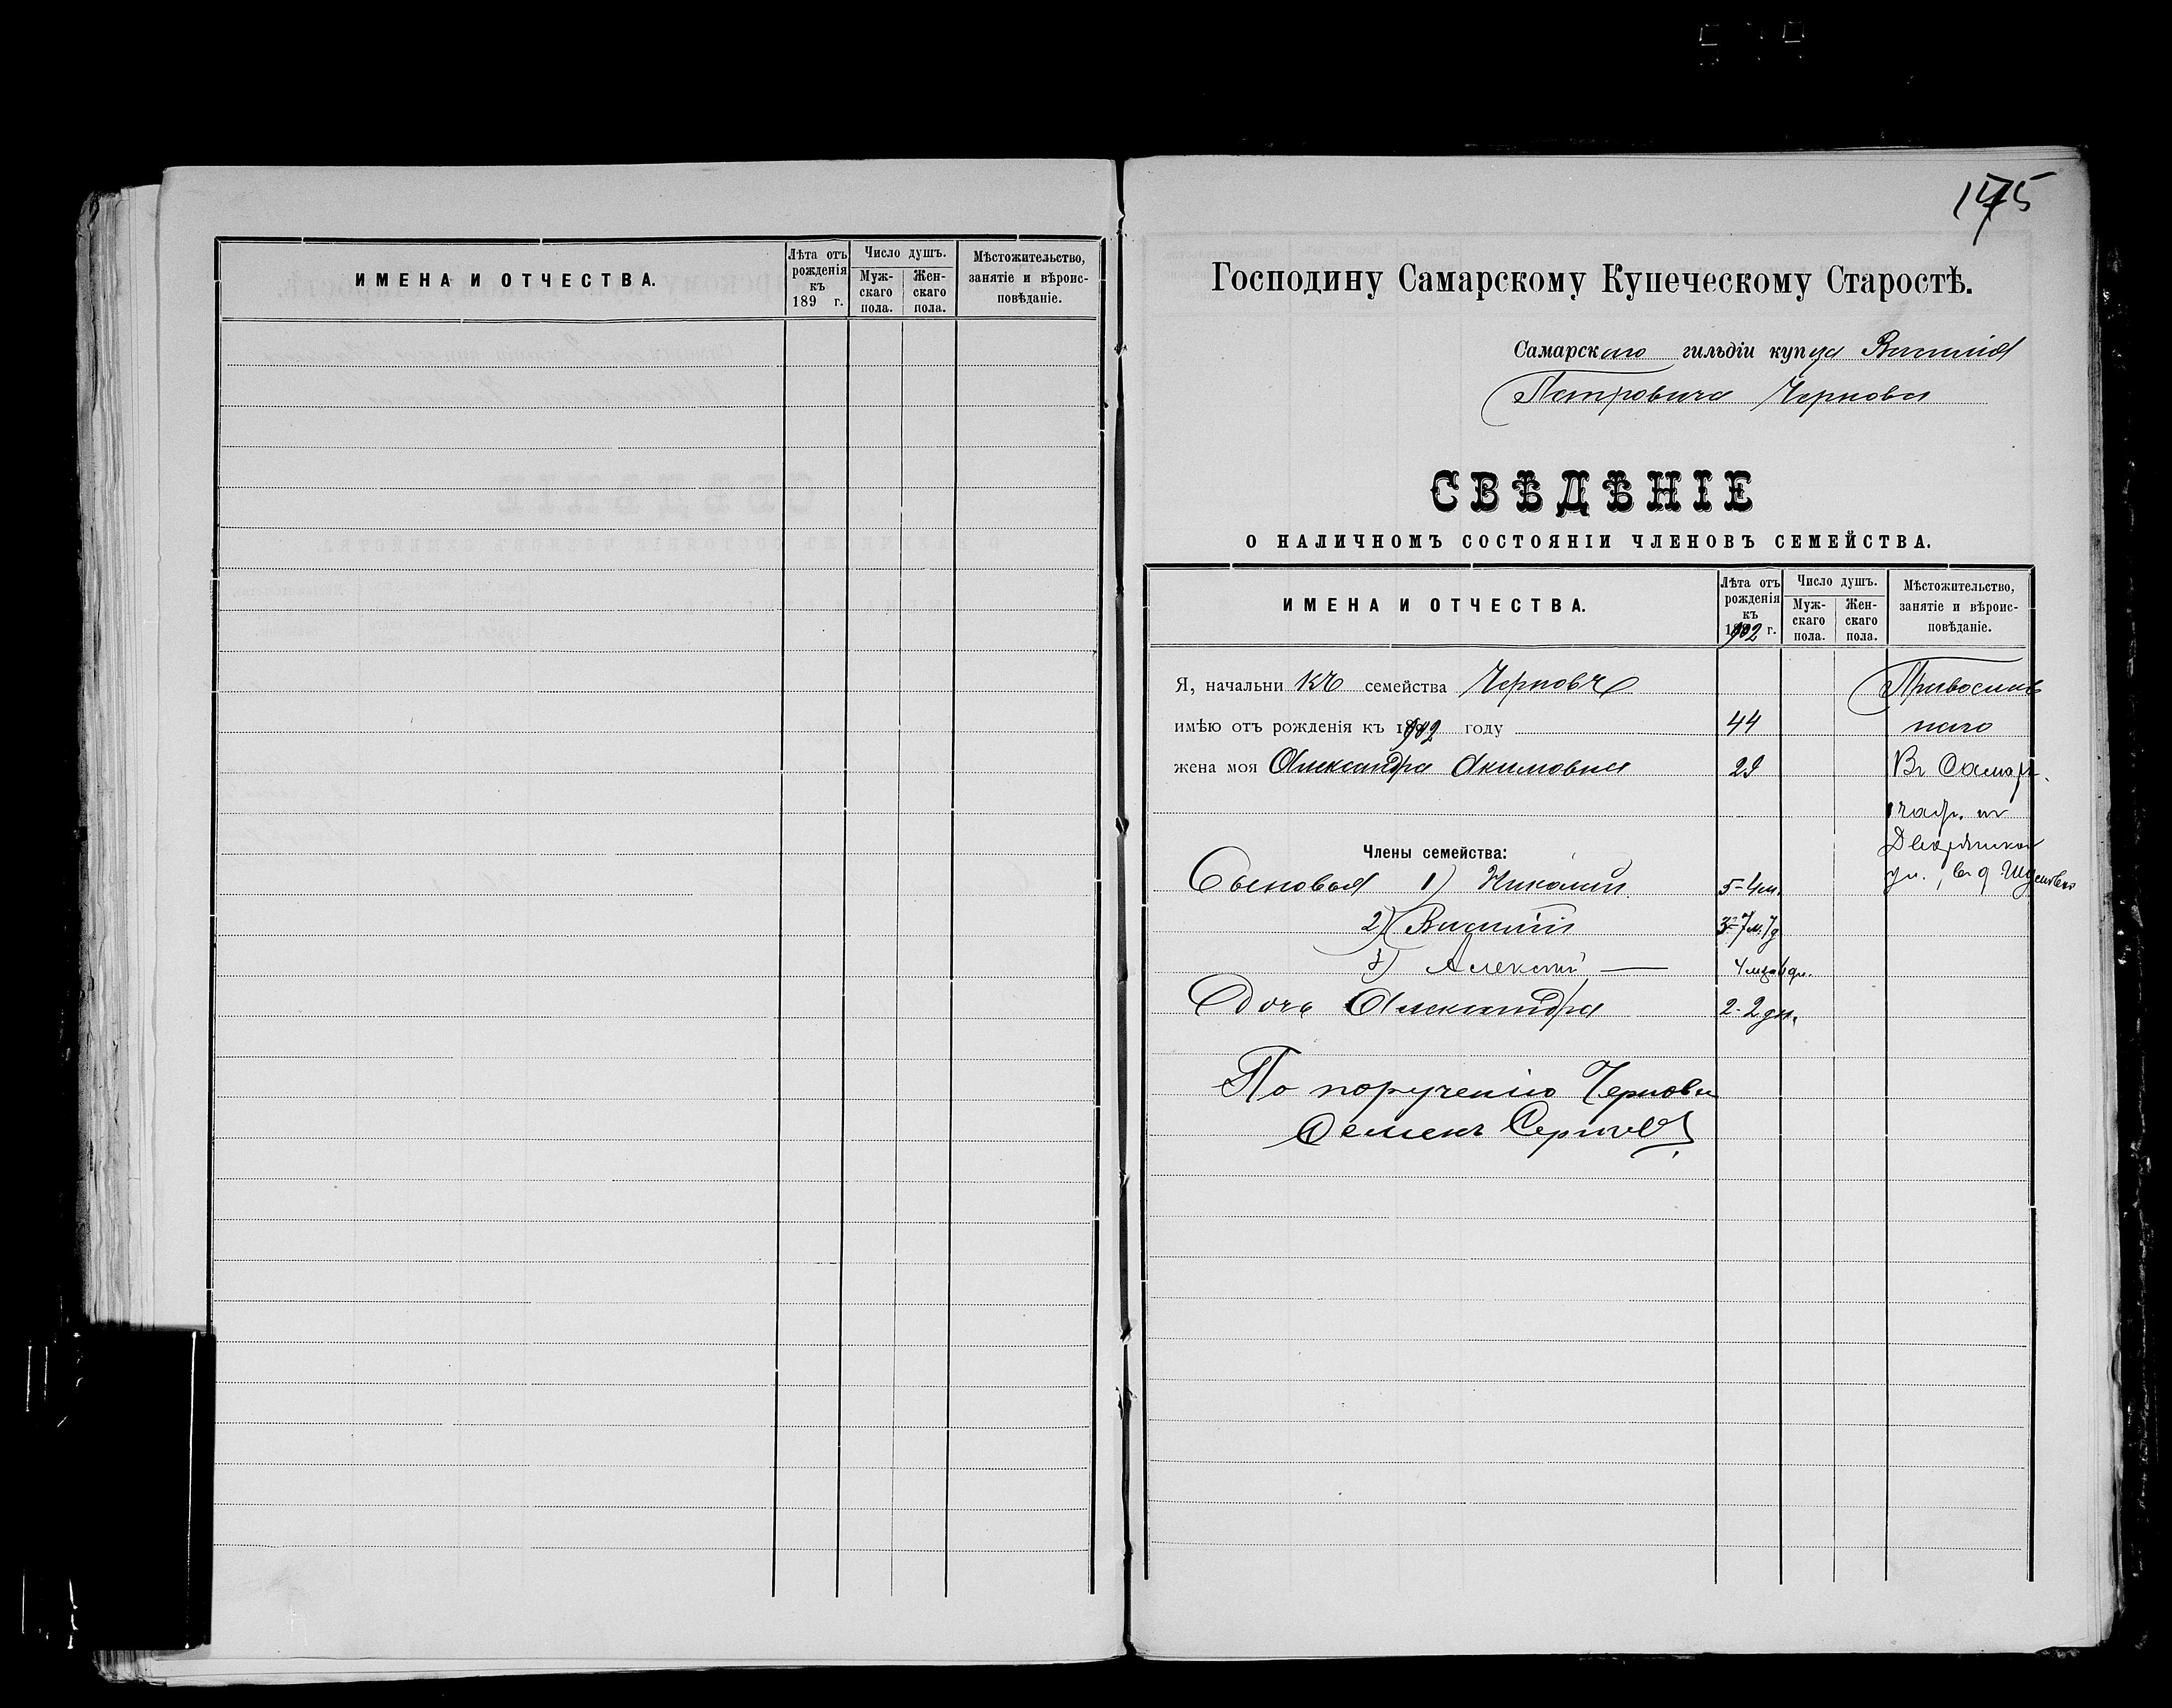 ИМЕНА И ОТЧЕСТВА.
Лѣта отъ рожденія къ 189 г.
Число душъ.
Мужскаго пола.
Женскаго пола.
Мѣстожительство, занятіе и вѣроисповѣданіе.
Господину Самарскому Купеческому Старостѣ.
Самарскаго гильдіи купца Василія
Петровича Чернова
СВѢДѢНІЕ
О НАЛИЧНОМЪ СОСТОЯНІИ ЧЛЕНОВЪ СЕМЕЙСТВА.
ИМЕНА И ОТЧЕСТВА.
Лѣта отъ рожденія къ 1902 г.
Число душъ.
Мужскаго пола.
Женскаго пола.
Мѣстожительство, занятіе и вѣроисповѣданіе.
Я, начальникъ семейства Черновъ Православ
имѣю отъ рожденія къ 1902 году 44 наго
жена моя Александра Акимовна 29 Въ Самар.
Дворянской
Члены семейства:
ул., въ д
Сыновья 1) Николай 5-4м.
2) Василій 3-7м. 7д
3) Алексѣй —
Дочь Александра 2-2дн.
По порученію Чернова
Семенъ